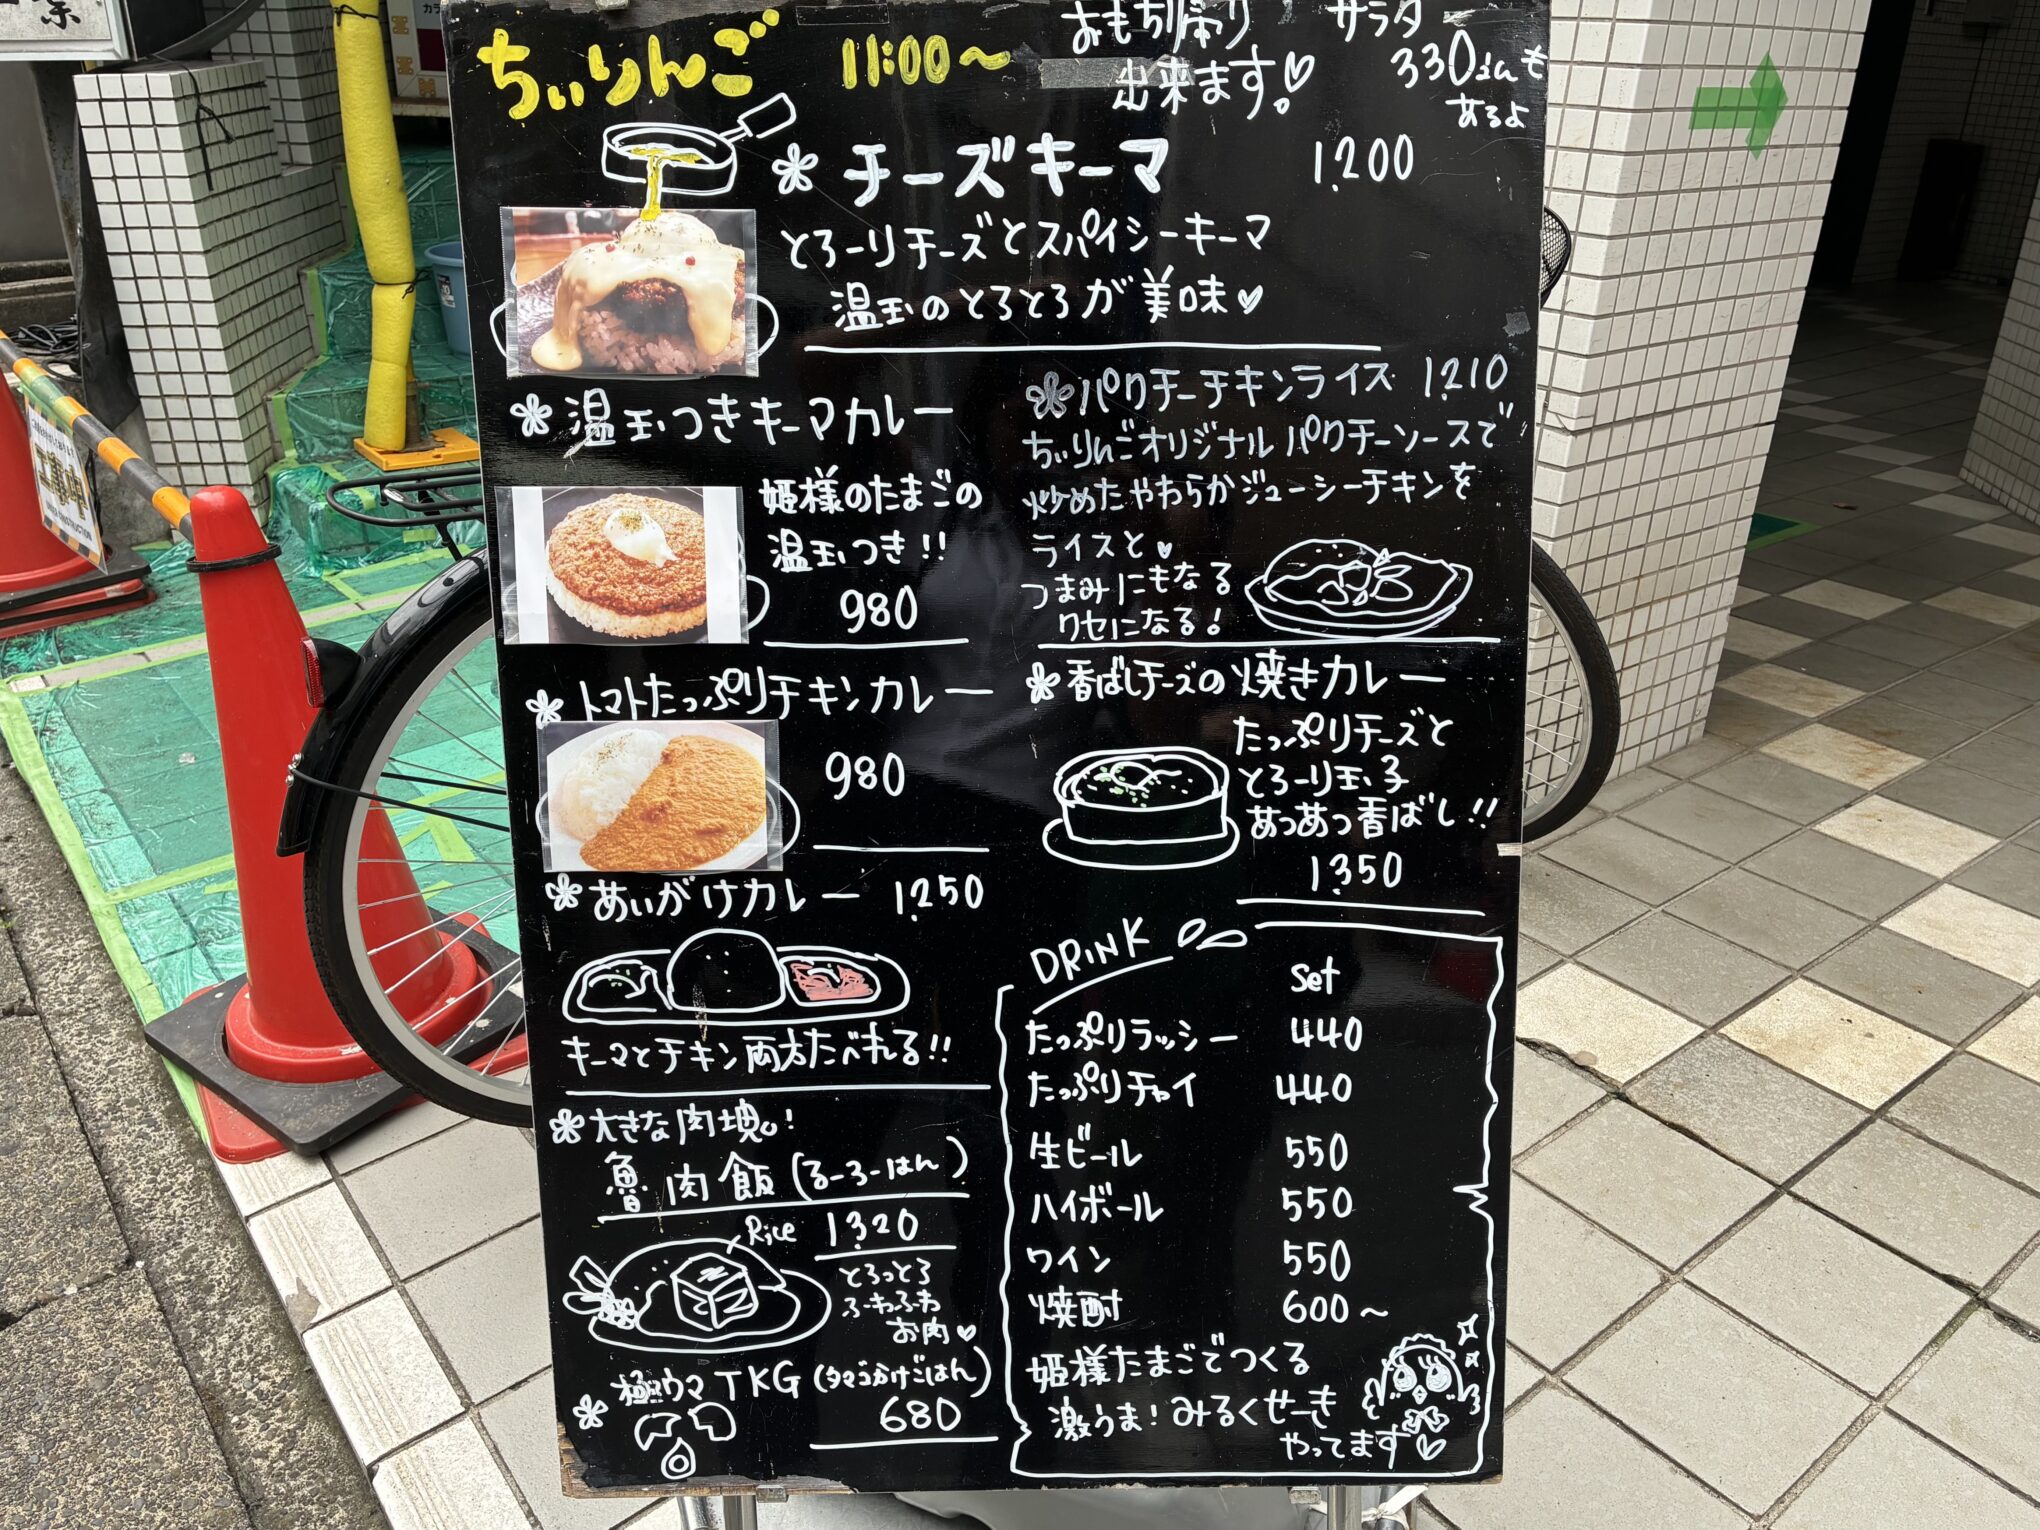 ちぃりんご 11:00～
おもち帰り
出来ます!
サラダ
330えんも
あるよ
チーズキーマ 1,200
とろーりチーズとスパイシーキーマ
温玉のとろとろが美味
温玉つきキーマカレー
姫様のたまごの
温玉つき!!
980
パクチーチキンライス 1,210
ちぃりんごオリジナルパクチーソースで
炒めたやわらかジューシーチキンを
ライスと
つまみにもなる
クセになる!
トマトたっぷりチキンカレー
980
香ばしチーズの焼きカレー
たっぷりチーズと
とろーり玉子
あつあつ香ばし!!
1,350
あいがけカレー 1,250
キーマとチキン両方たべれる!!
大きな肉塊!
魯肉飯(るーろーはん)
Rice 1,320
とろっとろ
ふーわふーわ
お肉
極ウマTKG(タマゴかけごはん)
680
DRINK
set
たっぷりラッシー 440
たっぷりチャイ 440
生ビール 550
ハイボール 550
ワイン 550
焼酎 600～
姫様たまごでつくる
激うま!みるくせーき
やってます